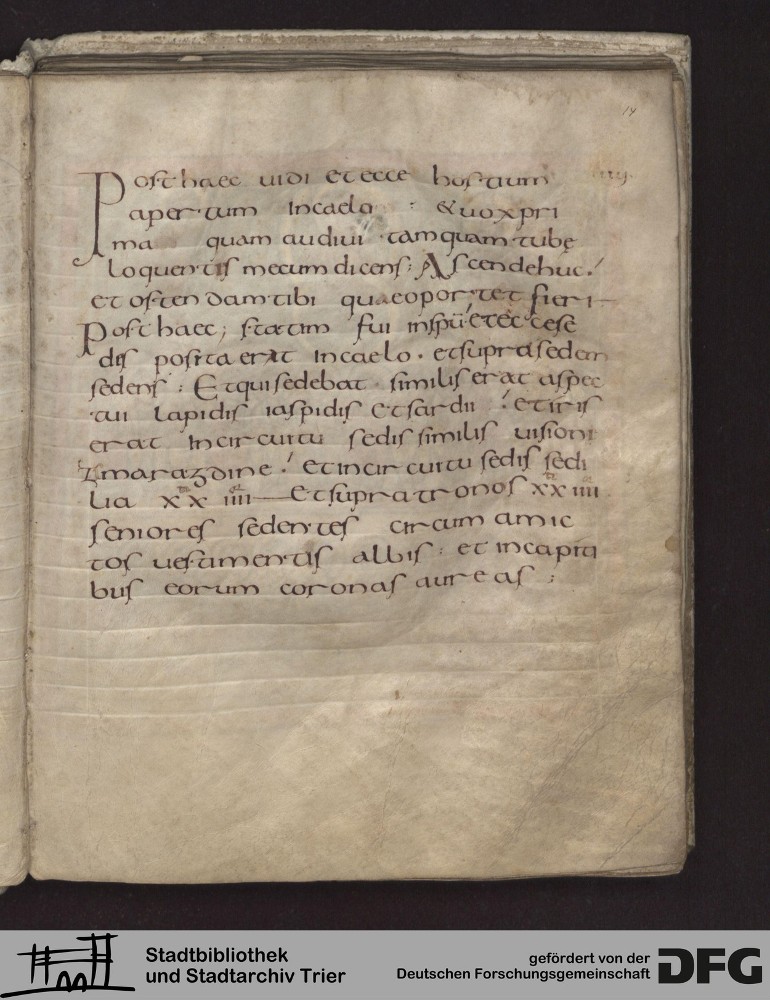 14
Posthaec uidi et ecce hostium
apertum incaelo : & uox pri
ma quam audiui tamquam tubę
loquentis mecum dicens; Ascende huc.
et ostendam tibi quae oportet fieri
Posthaec; statim fui inspū et ecce se
dis posita erat incaelo. et supra sedem
sedens; Et qui sedebat similis erat aspec
tui lapidis iaspidis et sardii et iris
erat incircuitu sedis similis uisioni
zmaragdine. et incircuitu sedis sedi
lia xx iiii et supra tronos xx iiii
seniores sedentes circum amic
tos uestimentis albis: et incapiti
bus eorum coronas aureas;
Stadtbibliothek
und Stadtarchiv Trier
gefördert von der
Deutschen Forschungsgemeinschaft
DFG